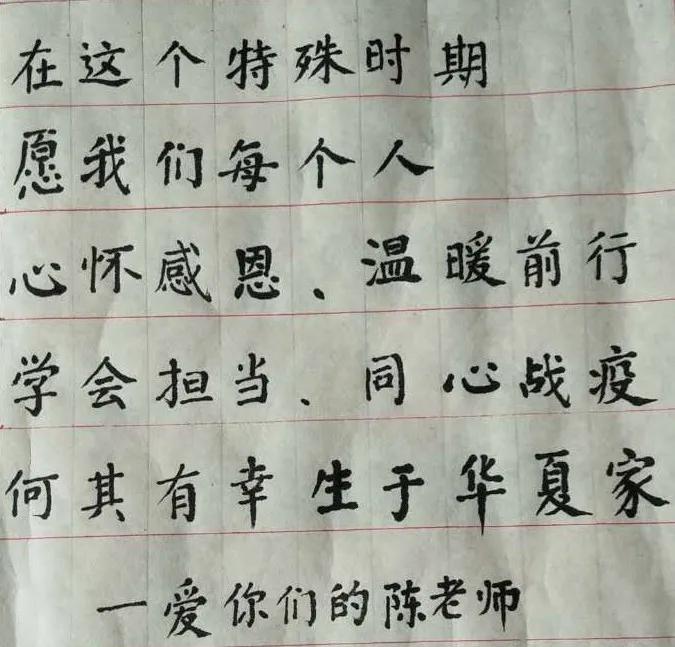 在这个特殊时期
愿我们每个人
心怀感恩、温暖前行
学会担当、同心战疫
何其有幸生于华夏家
一爱你们的陈老师